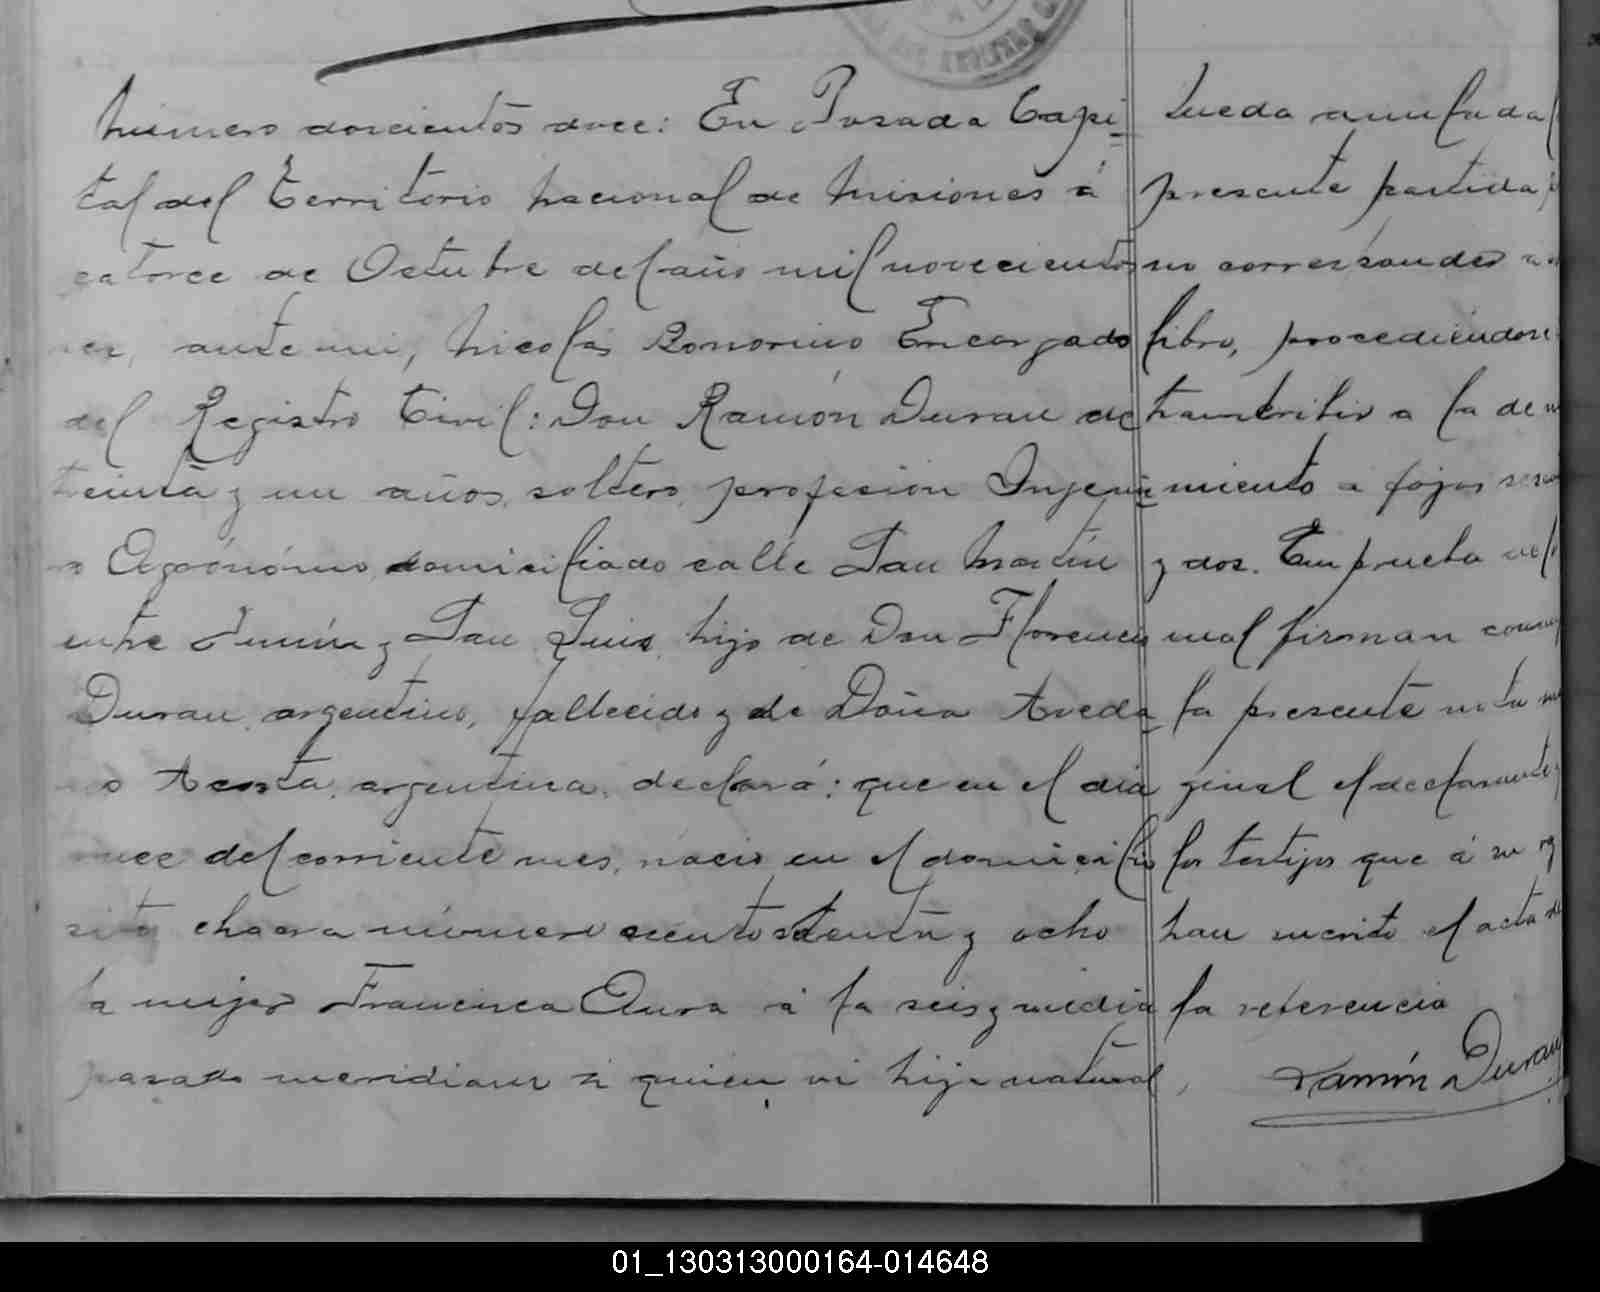 Número doscientos doce: En Posada Capi-
tal del Territorio Nacional de Misiones á
catorce de Octubre del año mil novecientos
ante mi, Nicolás Bonorino Encargado
del Registro Civil: Don Ramón Duran de
treinta y un años, soltero, profesión Ingenie-
ro Agrónómo, domiciliado calle San Martín
entre Junín y San Luis, hijo de Don Florencio
Duran, argentino, fallecido y de Doña
Acosta, argentina, declaró: que en el día
once del corriente mes, nació en el domicilio
sito chacra número ciento setenta y ocho
la mujer Francisca Aura á la seis y media
pasado meridiano á quien vi hija natural,
Queda anulada
presente partida
no corresponder á
libro, procediéndose
transcribir a la de
miento a fojas
y dos. En prueba
cual firman
la presente nota
ginal el declarante
los testigos que á su
han suscrito el acta de
la referencia
Ramón Duran
01_130313000164-014648